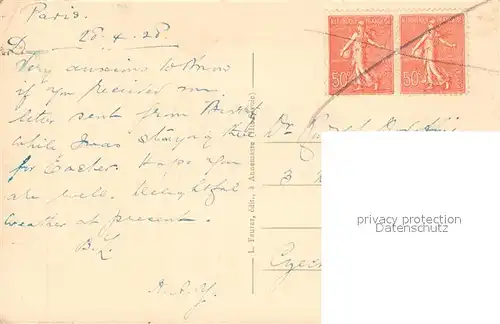 Paris.
28.4.28
Very anxious to know
if you received my
letter sent from
while I was staying there
for Easter. Hope you
are well. Delightful
weather at present.
B.L.
REPUBLIQUE FRANÇAISE
REPUBLIQUE FRANÇAISE
50c
50c
L. Fauraz, édit., à Annemasse
Dr
3
privacy protection
Datenschutz